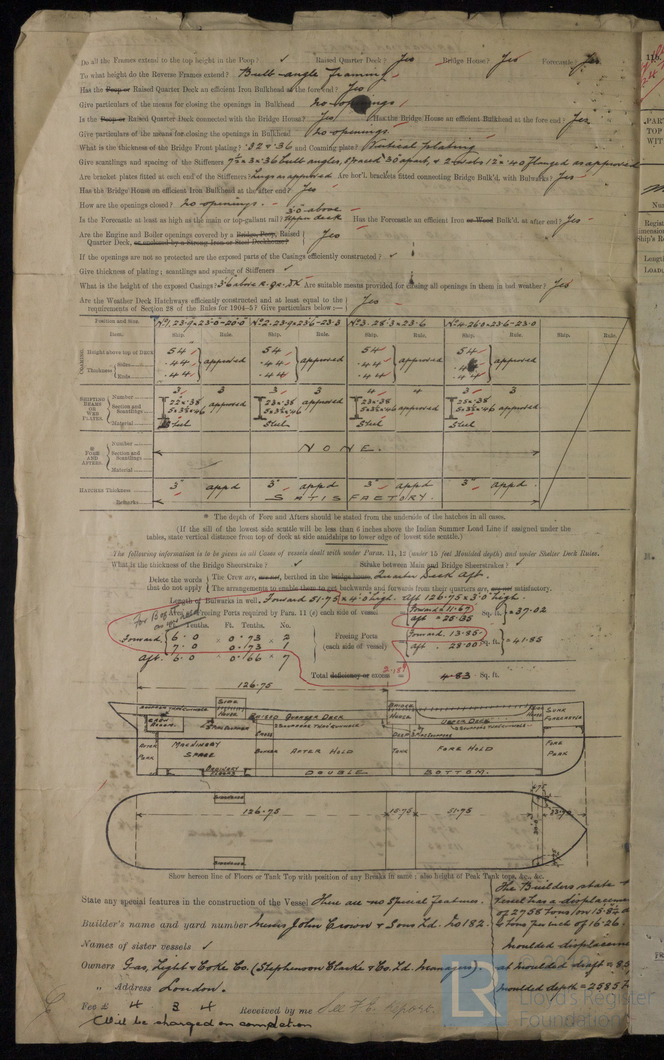 Do all the Frames extend to the top height in the Poop? ✓ Raised Quarter Deck? Yes Bridge House? Yes Forecastle? Yes
To what height do the Reverse Frames extend? Bulb-angle Framing
Has the Poop or Raised Quarter Deck an efficient Iron Bulkhead at the fore end? Yes
Give particulars of the means for closing the openings in Bulkhead No openings
Is the Poop or Raised Quarter Deck connected with the Bridge House? Yes Has the Bridge House an efficient Bulkhead at the fore end? Yes
Give particulars of the means for closing the openings in Bulkhead No openings
What is the thickness of the Bridge Front plating? .32 & .36 and Coaming plate? Vertical plating
Give scantlings and spacing of the Stiffeners 7½ x 3 x .36 bulb angles, spaced 30 apart, & 2 webs 12 x .40 flanged as approved
Are bracket plates fitted at each end of the Stiffeners? Lugs as approved Are hor'l. brackets fitted connecting Bridge Bulk'd. with Bulwarks? Yes
Has the Bridge House an efficient Iron Bulkhead at the after end? Yes
How are the openings closed? No openings.
Is the Forecastle at least as high as the main or top-gallant rail? 3'0 above Upper deck Has the Forecastle an efficient Iron or Wood Bulk'd. at after end? Yes
Are the Engine and Boiler openings covered by a Bridge, Poop, Raised Quarter Deck, or enclosed by a Strong Iron or Steel Deckhouse? Yes
If the openings are not so protected are the exposed parts of the Casings efficiently constructed? ✓
Give thickness of plating; scantlings and spacing of Stiffeners ✓
What is the height of the exposed Casings? 3'6 above R. Qr. Dk Are suitable means provided for closing all openings in them in bad weather? Yes
Are the Weather Deck Hatchways efficiently constructed and at least equal to the requirements of Section 28 of the Rules for 1904-5? Give particulars below:— Yes
Position and Size. No 1. 23.9 x 23.0-20.0 No 2. 23.9 x 23.6-23.3 No 3. 28.3 x 23.6 No 4. 26.9 x 23.6-23.0
Item. Ship. Rule. Ship. Rule. Ship. Rule. Ship. Rule. Ship. Rule. Ship. Rule.
COAMING. Height above top of DECK 54 54 54 54
Thickness Sides .44 approved .44 approved .44 approved .44 approved
Ends .44 .44 .44 .44
SHIFTING BEAMS OR WEB PLATES. Number 3 3 3 3 4 4 3 3
Section and Scantlings approved approved approved approved
Material Steel Steel Steel Steel
* FORE AND AFTERS. Number
Section and Scantlings NONE.
Material
HATCHES Thickness 3" appd 3" appd 3" appd 3" appd
Remarks SATISFACTORY.
* The depth of Fore and Afters should be stated from the underside of the hatches in all cases.
(If the sill of the lowest side scuttle will be less than 6 inches above the Indian Summer Load Line if assigned under the
tables, state vertical distance from top of deck at side amidships to lower edge of lowest side scuttle.)
The following information is to be given in all Cases of vessels dealt with under Paras. 11, 12 (under 15 feet Moulded depth) and under Shelter Deck Rules.
What is the thickness of the Bridge Sheerstrake? ✓ Strake between Main and Bridge Sheerstrakes? ✓
Delete the words that do not apply The Crew are, berthed in the bridge house. Quarter Deck Aft.
The arrangements to enable them to get backwards and forwards from their quarters are, satisfactory.
Length of Bulwarks in well. Forward 51.75 x 4.0 high. Aft 126.75 x 3.0 high.
Area of Freeing Ports required by Para. 11 (e) each side of vessel = Forward 11.67 Aft = 25.35 Sq. ft. = 37.02
Tenths. Ft. Tenths. No.
Forward 6.0 x 0.73 x 2
7.0 x 0.73 1
Aft. 6.0 x 0.66 x 7
Freeing Ports (each side of vessel) = Forward. 13.85 Aft. 28.00 Sq. ft. = 41.85
Total deficiency or excess = 2.18 4.83 Sq. ft.
126.75
SIDE HOUSE
RAISED QUARTER DECK
BRIDGE HOUSE
UPPER DECK
SUNK FORECASTLE
AFTER PEAK MACHINERY SPACE CROSS BUNKER AFTER HOLD DEEP TANK FORE HOLD FORE PEAK
DOUBLE BOTTOM.
126.75 15.75 51.75
Show hereon line of Floors or Tank Top with position of any Breaks in same; also height of Peak Tank tops, &c., &c.
State any special features in the construction of the Vessel There are no Special features.
The Builders state
Vessel has a displacement
of 2758 tons on 15.8
& Tons per inch of 16.26.
Builder's name and yard number Messrs John Crown & Sons Ld. No 182.
Moulded displacement
Names of sister vessels ✓
Owners Gas, Light & Coke Co. (Stephenson Clarke & Co. Ld. Managers).
at moulded draft = 85
„ Address London.
moulded depth = 2585
Fee £ 4 3 4 Received by me See F.E. Report.
Will be charged on completion
LR
Lloyd's Register
Foundation